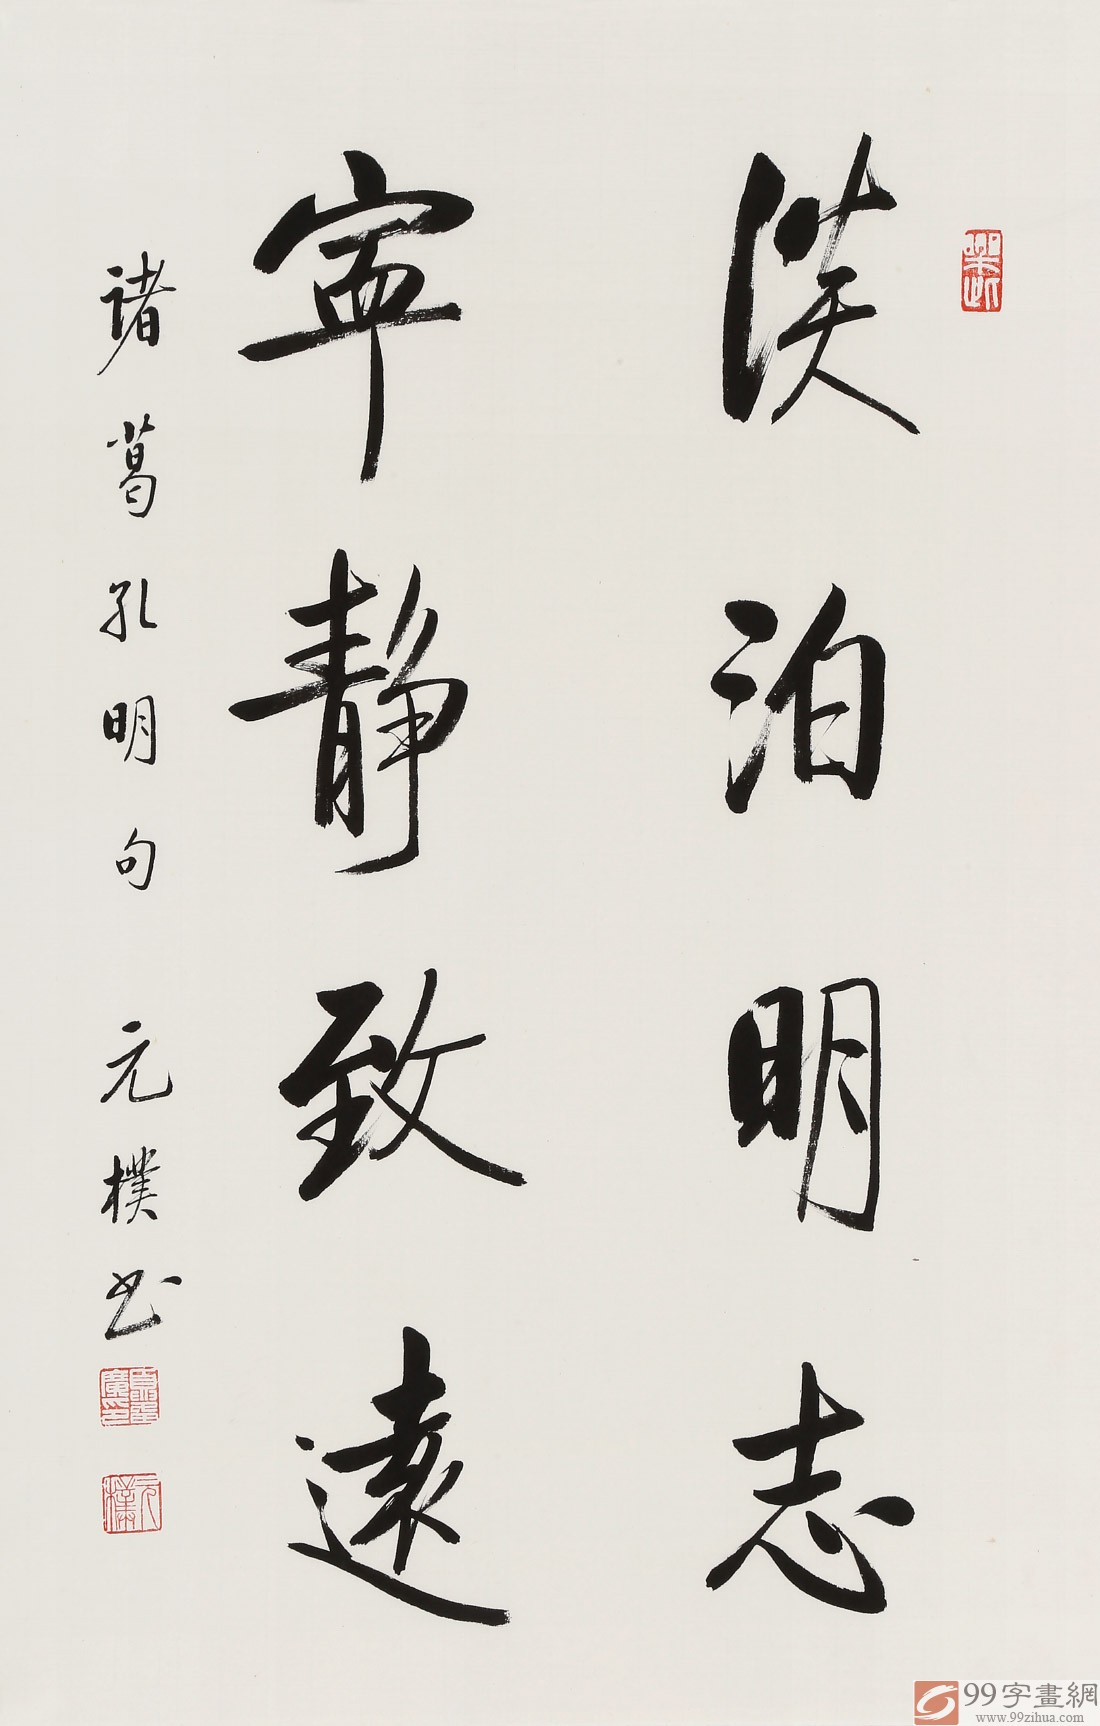 淡泊明志
寧靜致遠
诸葛孔明句 元樸书
元樸
99字畫網
www.99zihua.com